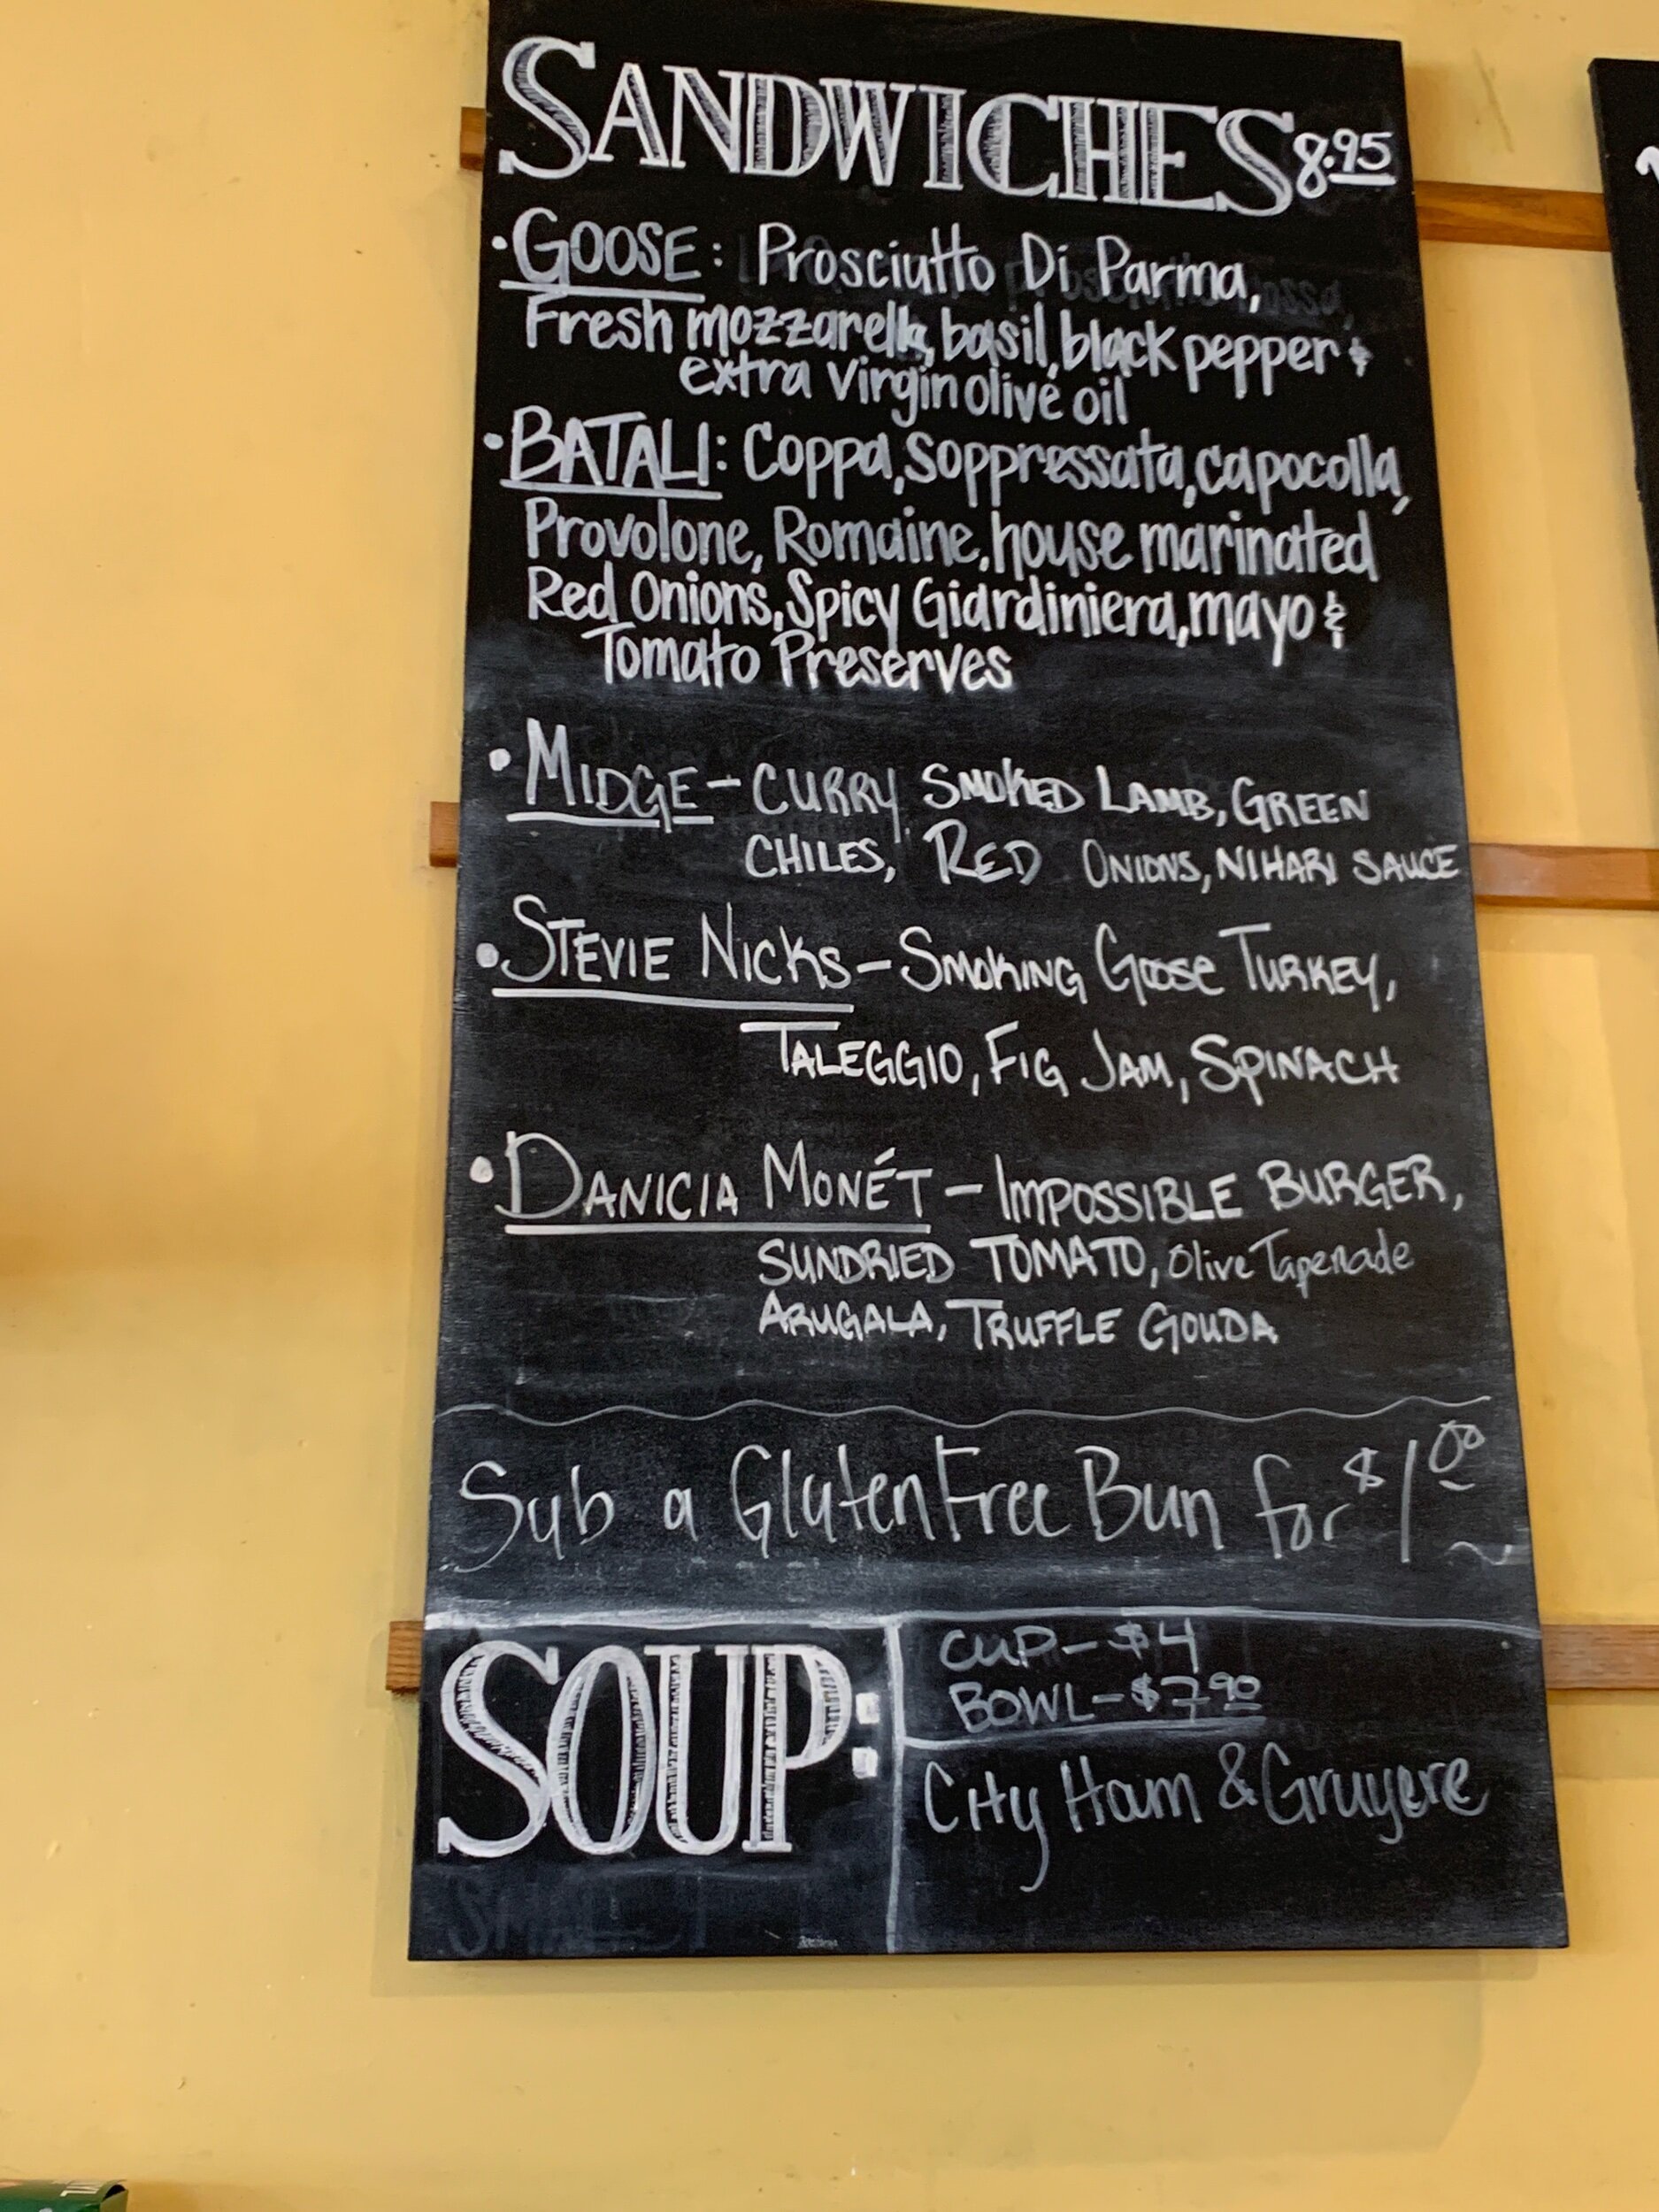 SANDWICHES 8.95
• GOOSE: Prosciutto Di Parma,
Fresh mozzarella, basil, black pepper &
extra virgin olive oil
• BATALI: Coppa, Soppressata, capocolla,
Provolone, Romaine, house marinated
Red Onions, Spicy Giardiniera, mayo &
Tomato Preserves
• MIDGE – CURRY SMOKED LAMB, GREEN
CHILES, RED ONIONS, NIHARI SAUCE
• STEVIE NICKS – SMOKING GOOSE TURKEY,
TALEGGIO, FIG JAM, SPINACH
• DANICIA MONÉT – IMPOSSIBLE BURGER,
SUNDRIED TOMATO, Olive Tapenade
ARUGALA, TRUFFLE GOUDA
Sub a Gluten Free Bun for $1.00
SOUP:
CUP – $4
BOWL – $7.90
City Ham & Gruyere